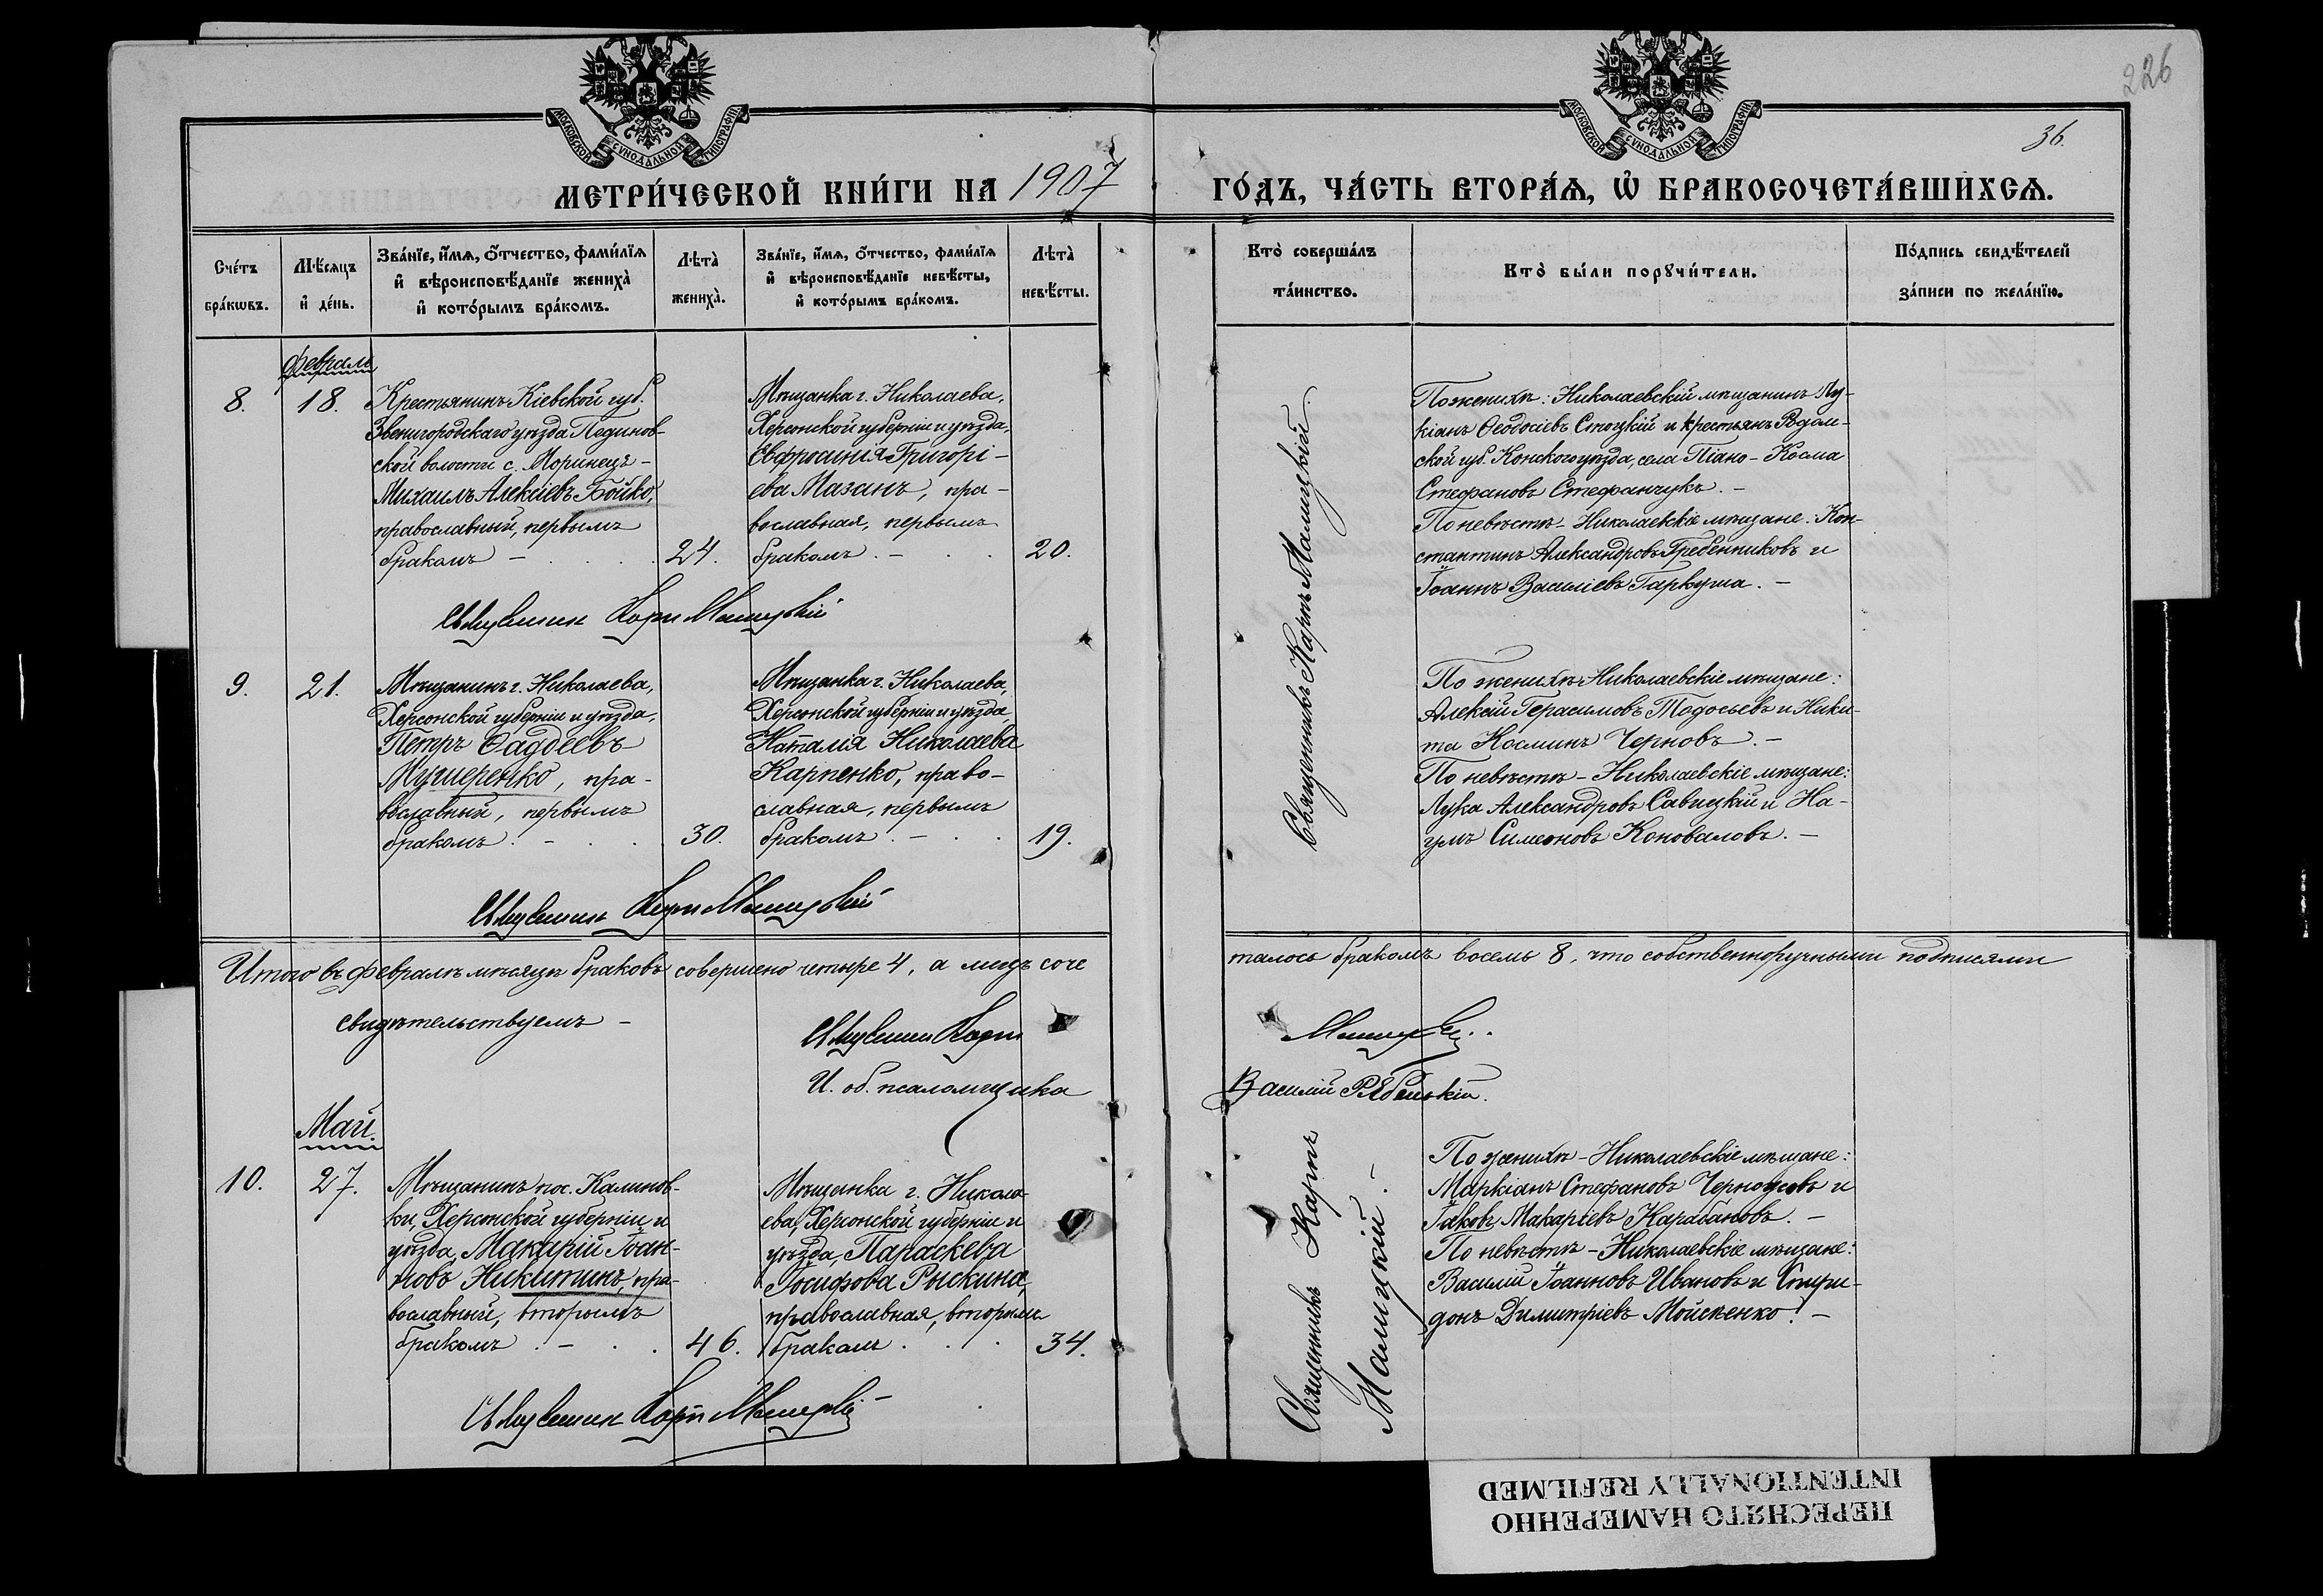 226
36.
МОСКОВСКОЙ СѴНОДАЛЬНОЙ ТИПОГРАФІИ
МОСКОВСКОЙ СѴНОДАЛЬНОЙ ТИПОГРАФІИ
МЕТРИ́ЧЕСКОЙ КНИ́ГИ НА 1907 ГО́ДЪ, ЧА́СТЬ ВТОРА́Ѧ, Ѽ БРАКОСОЧЕТА́ВШИХСѦ.
Сче́тъ бра́кѡвъ.
Мѣ́сяцъ и҆ де́нь.
Зва́нїе, и҆́мѧ, ѻ҆́тчество, фами́лїѧ
и҆ вѣроисповѣ́данїе жениха̀
и҆ кото́рымъ бра́комъ.
Лѣта̀ жениха̀.
Зва́нїе, и҆́мѧ, ѻ҆́тчество, фами́лїѧ
и҆ вѣроисповѣ́данїе невѣ́сты,
и҆ кото́рымъ бра́комъ.
Лѣта̀ невѣ́сты.
Кто̀ соверша́лъ
та́инство.
Кто̀ бы́ли порꙋчи́тели.
По́дпись свидѣ́телей
за́писи по жела́нїю.
Февраль
8.
18.
Крестьянинъ Кіевской губ.
Звенигородскаго уѣзда Пединов-
ской волости с. Моринецъ -
Михаилъ Алексіевъ Бойко,
православный, первымъ
бракомъ -
24.
Мѣщанка г. Николаева,
Херсонской губерніи и уѣзда,
Евфросинія Григорі-
ева Мазанъ, пра-
вославная, первымъ
бракомъ. -
20.
Священникъ Карпъ Малицкій
По женихѣ: Николаевскій мѣщанинъ Лу-
кіанъ Ѳеодосіевъ Стоцкій и крестьян
ской губ. Конского уѣзда, села Піано - Косма
Стефановъ Стефанчукъ. -
По невѣстѣ - Николаевскіе мѣщане: Кон-
стантинъ Александровъ Гребенниковъ и
Іоаннъ Василіевъ Гаркуша. -
Священник Карп Малицкій
9.
21.
Мѣщанинъ г. Николаева,
Херсонской губерніи и уѣзда,
Петръ Ѳаддеевъ
Мушеренко, пра-
вославный, первымъ
бракомъ. -
30.
Мѣщанка г. Николаева,
Херсонской губерніи и уѣзда,
Наталія Николаева
Карпенко, право-
славная, первымъ
бракомъ. -
19.
По женихѣ Николаевскіе мѣщане:
Алексій Герасимовъ Тодосьевъ и Ники-
та Косминъ Черновъ. -
По невѣстѣ - Николаевскіе мѣщане:
Лука Александровъ Савицкій и На-
умъ Симеоновъ Коноваловъ. -
Священник Карп Малицкій
Итого въ февралѣ мѣсяцѣ браковъ совершено четыре 4, а лицъ соче
талось бракомъ восемь 8, что собственноручными подписями
свидѣтельствуемъ -
Священник Карп Малицкій
И. об. псаломщика Василій Рябицкій.
Май.
10.
27.
Мѣщанинъ пос. Калинов-
ки, Херсонской губерніи и
уѣзда, Макарій Іоан-
новъ Никитинъ, пра-
вославный, вторымъ
бракомъ. -
46.
Мѣщанка г. Никола-
ева, Херсонской губерніи и
уѣзда, Параскева
Іосифова Рыскина,
православная, вторымъ
бракомъ.
34.
Священникъ Карпъ
Малицкій. -
По женихѣ - Николаевскіе мѣщане:
Маркіанъ Стефановъ Черноусовъ и
Іаковъ Макаріевъ Карабановъ. -
По невѣстѣ - Николаевскіе мѣщане:
Василій Іоанновъ Ивановъ и Спири-
донъ Димитріевъ Мойсѣенко. -
Священник Карп Малицкій
ПЕРЕСНЯТО НАМЕРЕННО
INTENTIONALLY REFILMED